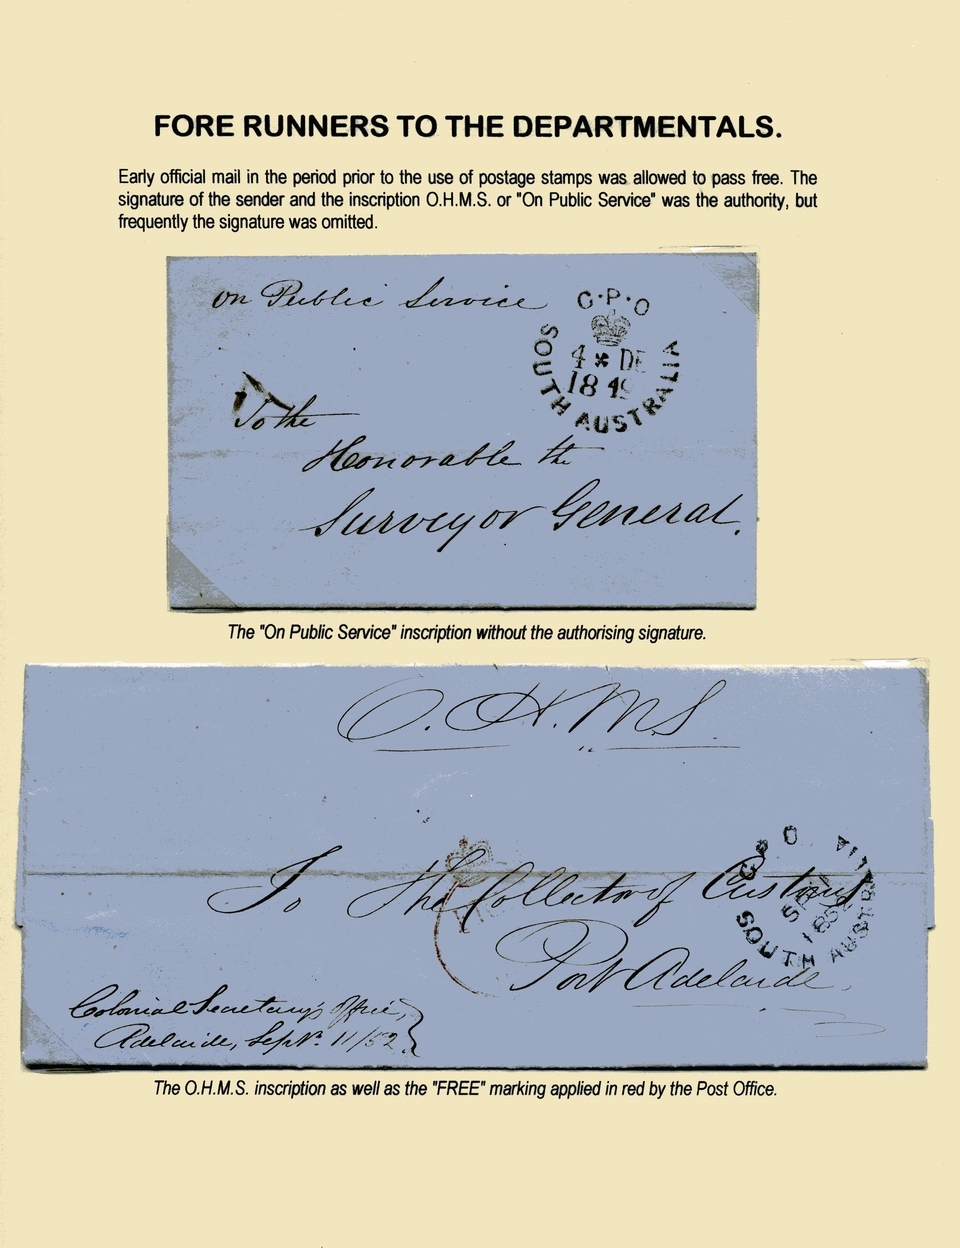 FORE RUNNERS TO THE DEPARTMENTALS.
Early official mail in the period prior to the use of postage stamps was allowed to pass free. The
signature of the sender and the inscription O.H.M.S. or "On Public Service" was the authority, but
frequently the signature was omitted.
On Public Service
G.P.O
4 * DE
1849
SOUTH AUSTRALIA
To the
Honorable the
Surveyor General.
The "On Public Service" inscription without the authorising signature.
O.H.M.S.
To The Collector of Customs
Port Adelaide
G P O
SP
1852
SOUTH AUSTRALIA
Colonial Secretary's Office,
Adelaide, Septr. 11/52.
The O.H.M.S. inscription as well as the "FREE" marking applied in red by the Post Office.